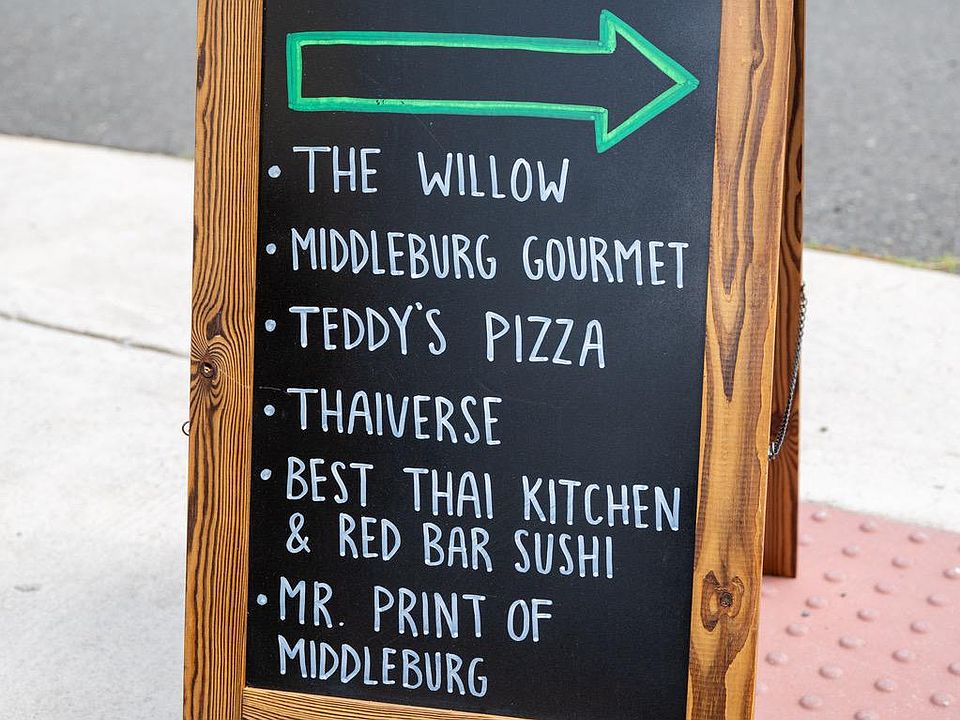 • THE WILLOW
• MIDDLEBURG GOURMET
• TEDDY'S PIZZA
• THAIVERSE
• BEST THAI KITCHEN
& RED BAR SUSHI
• MR. PRINT OF
MIDDLEBURG